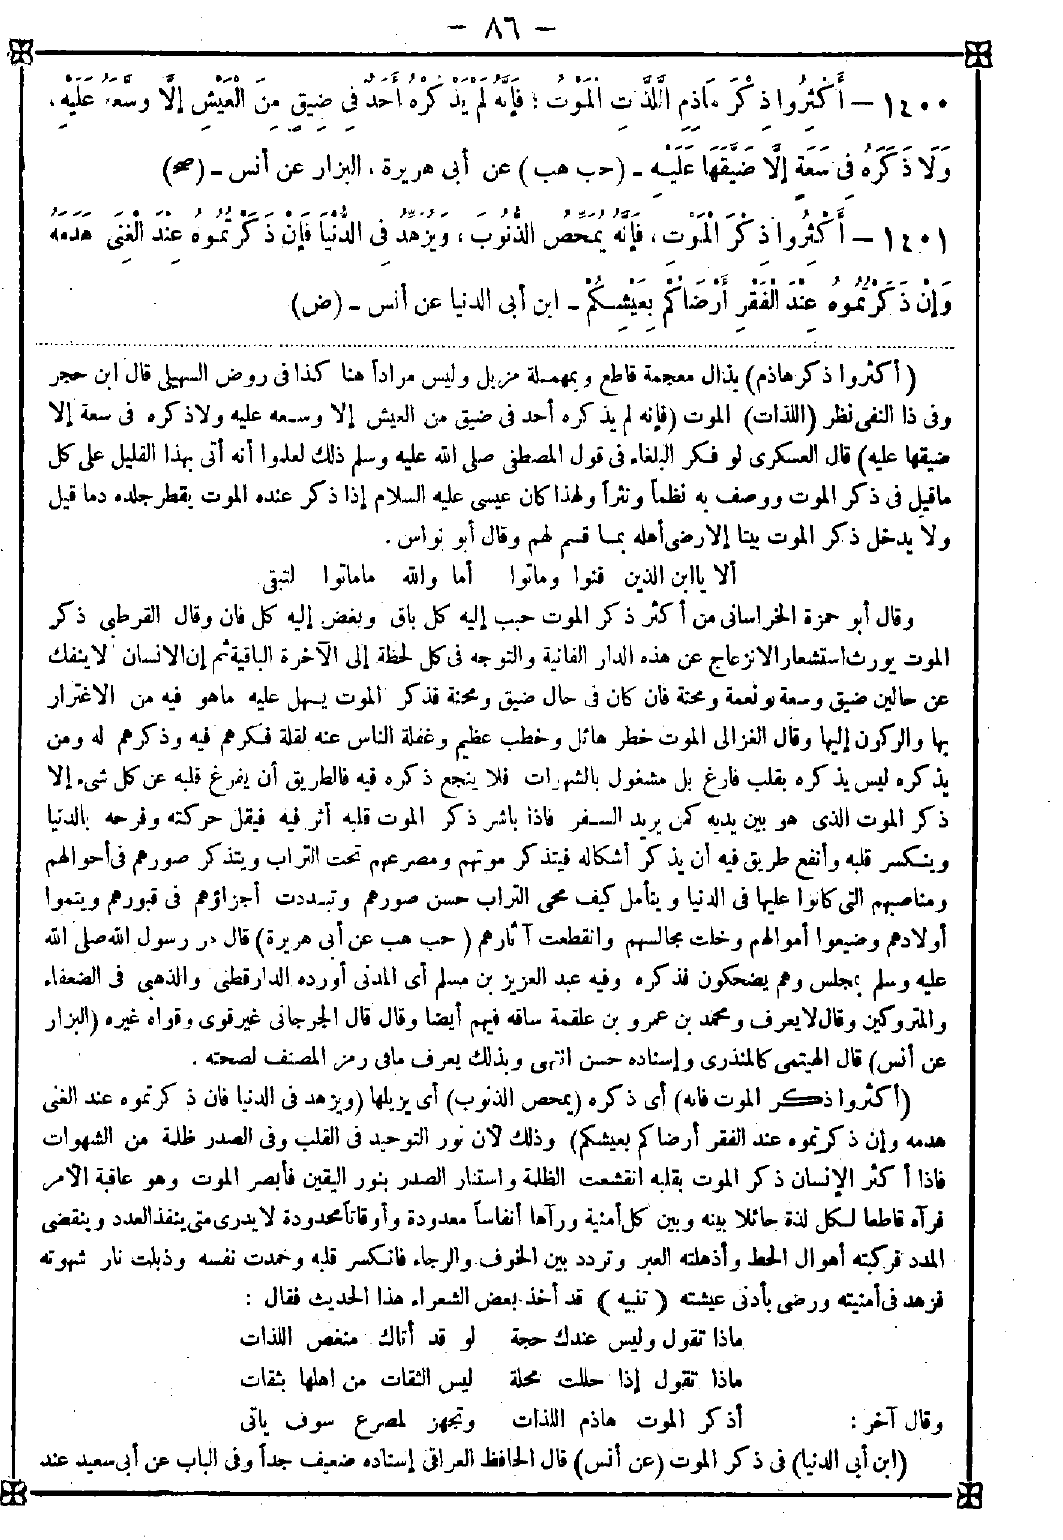 — ٨٦ —
١٤٠٠ — أَكْثِرُوا ذِكْرَ هَاذِمِ اللَّذَّاتِ الْمَوْتِ ؛ فَإِنَّهُ لَمْ يَذْكُرْهُ أَحَدٌ فِي ضِيقٍ مِنَ الْعَيْشِ إِلَّا وَسَّعَهُ عَلَيْهِ ،
وَلَا ذَكَرَهُ فِي سَعَةٍ إِلَّا ضَيَّقَهَا عَلَيْهِ - (حب هب) عن أبى هريرة ، البزار عن أنس - (صح)
١٤٠١ — أَكْثِرُوا ذِكْرَ الْمَوْتِ ، فَإِنَّهُ يُمَحِّصُ الذُّنُوبَ ، وَيُزَهِّدُ فِي الدُّنْيَا فَإِنْ ذَكَرْتُمُوهُ عِنْدَ الْغِنَى هَدَمَهُ
وَإِنْ ذَكَرْتُمُوهُ عِنْدَ الْفَقْرِ أَرْضَاكُمْ بِعَيْشِكُمْ - ابن أبى الدنيا عن أنس - (ض)
(أكثروا ذكر هاذم) بذال معجمة قاطع وبمهملة مزيل وليس مراداً هنا كذا فى روض السهيلى قال ابن حجر
وفى ذا النفى نظر (اللذات) الموت (فإنه لم يذكره أحد فى ضيق من العيش إلا وسعه عليه ولاذكره فى سعة إلا
ضيقها عليه) قال العسكرى لو فكر البلغاء فى قول المصطفى صلى الله عليه وسلم ذلك لعلموا أنه أتى بهذا القليل على كل
ماقيل فى ذكر الموت ووصف به نظماً ونثراً ولهذا كان عيسى عليه السلام إذا ذكر عنده الموت يقطر جلده دما قيل
ولا يدخل ذكر الموت بيتا إلا رضى أهله بما قسم لهم وقال أبو نواس .
ألا يا ابن الذين فنوا وماتوا أما والله ماماتوا لتبقى
وقال أبو حمزة الخراسانى من أكثر ذكر الموت حبب إليه كل باق وبغض إليه كل فان وقال القرطبى ذكر
الموت يورث استشعار الانزعاج عن هذه الدار الفانية والتوجه فى كل لحظة إلى الآخرة الباقية ثم إن الانسان لا ينفك
عن حالين ضيق وسعة ونعمة ومحنة فان كان فى حال ضيق ومحنة فذكر الموت يسهل عليه ماهو فيه من الاغترار
بها والركون إليها وقال الغزالى الموت خطر هائل وخطب عظيم وغفلة الناس عنه لقلة فكرهم فيه وذكرهم له ومن
يذكره ليس يذكره بقلب فارغ بل مشغول بالشهوات فلا ينجع ذكره فيه فالطريق أن يفرغ قلبه عن كل شىء إلا
ذكر الموت الذى هو بين يديه كمن يريد السفر فاذا باشر ذكر الموت قلبه أثر فيه فيقل حركته وفرحه بالدنيا
وينكسر قلبه وأنفع طريق فيه أن يذكر أشكاله فيتذكر موتهم ومصرعهم تحت التراب ويتذكر صورهم فى أحوالهم
ومناصبهم التى كانوا عليها فى الدنيا ويتأمل كيف محى التراب حسن صورهم وتبددت أجزاؤهم فى قبورهم ويتموا
أولادهم وضيعوا أموالهم وخلت مجالسهم وانقطعت آثارهم (حب هب عن أبى هريرة) قال مر رسول الله صلى الله
عليه وسلم بمجلس وهم يضحكون فذكره وفيه عبد العزيز بن مسلم أى المدنى أورده الدارقطنى والذهبى فى الضعفاء
والمتروكين وقال لايعرف ومحمد بن عمرو بن علقمة ساقه فيهم أيضا وقال قال الجرجانى غير قوى وقواه غيره (البزار
عن أنس) قال الهيتمى كالمنذرى وإسناده حسن انتهى وبذلك يعرف مافى رمز المصنف لصحته .
(أكثروا ذكر الموت فانه) أى ذكره (يمحص الذنوب) أى يزيلها (ويزهد فى الدنيا فان ذكرتموه عند الغنى
هدمه وإن ذكرتموه عند الفقر أرضاكم بعيشكم) وذلك لأن نور التوحيد فى القلب وفى الصدر ظلمة من الشهوات
فاذا أكثر الإنسان ذكر الموت بقلبه انقشعت الظلمة واستنار الصدر بنور اليقين فأبصر الموت وهو عاقبة الأمر
فرآه قاطعا لكل لذة حائلا بينه وبين كل أمنية ورآها أنفاساً معدودة وأوقاتاً محدودة لايدرى متى ينفذ العدد وينقضى
المدد فركبته أهوال الحط وأذهلته العبر وتردد بين الخوف والرجاء فانكسر قلبه وخمدت نفسه وذبلت نار شهوته
فزهد فى أمنيته ورضى بأدنى عيشته (تنبيه) قد أخذ بعض الشعراء هذا الحديث فقال :
ماذا تقول وليس عندك حجة لو قد أتاك منغص اللذات
ماذا تقول إذا حللت محلة ليس الثقات من اهلها بثقات
وقال آخر : أذكر الموت هاذم اللذات وتجهز لمصرع سوف ياتى
(ابن أبى الدنيا) فى ذكر الموت (عن أنس) قال الحافظ العراقى إسناده ضعيف جداً وفى الباب عن أبى سعيد عند